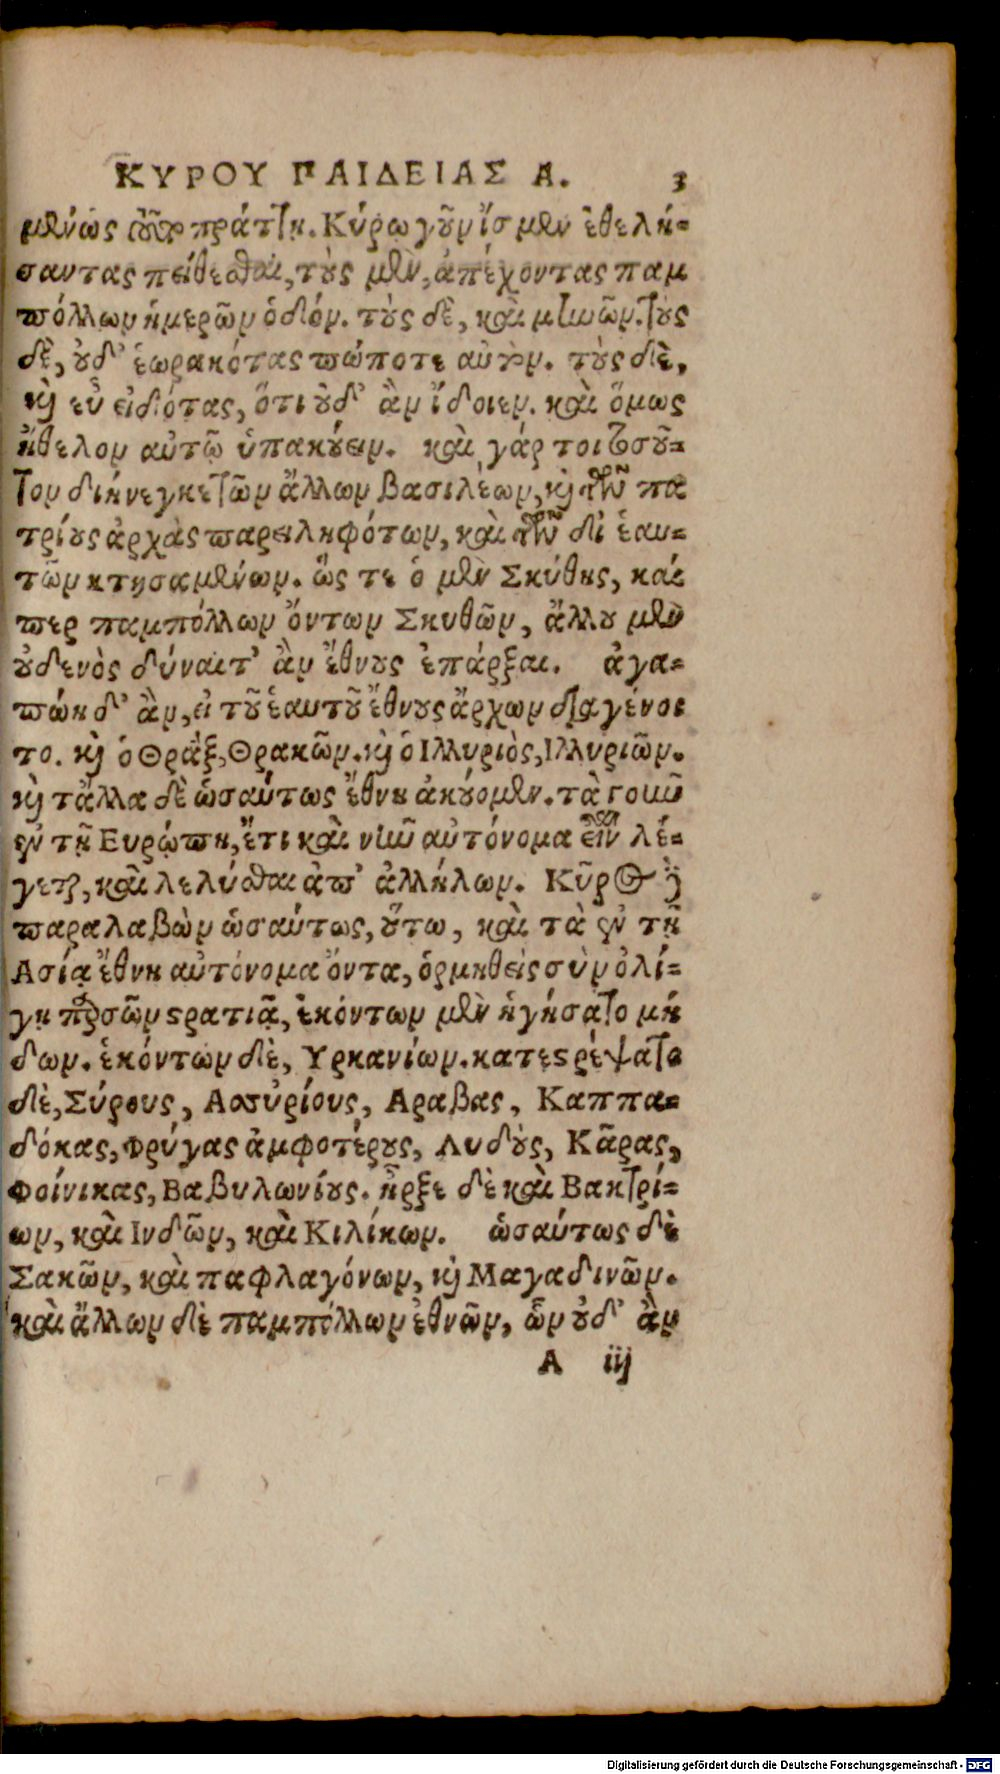 ΚΥΡΟΥ ΠΑΙΔΕΙΑΣ Α. 3
μένως τοῦτο πράττῃ. Κύρῳ γοῦν ἴσμεν ἐθελή-
σαντας πείθεσθαι, τοὺς μὲν, ἀπέχοντας παμ
πόλλων ἡμερῶν ὁδόν. τοὺς δὲ, καὶ μηνῶν. τοὺς
δὲ, οὐδ' ἑωρακότας πώποτε αὐτόν. τοὺς δὲ,
καὶ εὖ εἰδότας, ὅτι οὐδ' ἂν ἴδοιεν. καὶ ὅμως
ἤθελον αὐτῷ ὑπακούειν. καὶ γάρ τοι τοσοῦ-
τον διήνεγκε τῶν ἄλλων βασιλέων, καὶ τῶν πα
τρίους ἀρχὰς παρειληφότων, καὶ τῶν δι' ἑαυ-
τῶν κτησαμένων. ὥς τε ὁ μὲν Σκύθης, καί
περ παμπόλλων ὄντων Σκυθῶν, ἄλλου μὲν
οὐδενὸς δύναιτ' ἂν ἔθνους ἐπάρξαι. ἀγα-
πώη δ' ἂν, εἰ τοῦ ἑαυτοῦ ἔθνους ἄρχων διαγένοι
το. καὶ ὁ Θρᾲξ, Θρακῶν. καὶ ὁ Ιλλυριὸς, Ιλλυριῶν.
καὶ τἄλλα δὲ ὡσαύτως ἔθνη ἀκούομεν. τὰ γοῦν
ἐν τῇ Ευρώπῃ, ἔτι καὶ νῦν αὐτόνομα εἶναι λέ-
γεται, καὶ λελύσθαι ἀπ' ἀλλήλων. Κῦρος δὲ
παραλαβὼν ὡσαύτως, οὕτω, καὶ τὰ ἐν τῇ
Ασίᾳ ἔθνη αὐτόνομα ὄντα, ὁρμηθεὶς σὺν ὀλί-
γῃ περσῶν στρατιᾷ, ἑκόντων μὲν ἡγήσατο μή
δων. ἑκόντων δὲ, Υρκανίων. κατεστρέψατο
δὲ, Σύρους, Ασσυρίους, Αραβας, Καππα-
δόκας, Φρύγας ἀμφοτέρους, Λυδοὺς, Κᾶρας,
Φοίνικας, Βαβυλωνίους. ἦρξε δὲ καὶ Βακτρί-
ων, καὶ Ινδῶν, καὶ Κιλίκων. ὡσαύτως δὲ
Σακῶν, καὶ παφλαγόνων, καὶ Μαγαδινῶν.
καὶ ἄλλων δὲ παμπόλλων ἐθνῶν, ὧν οὐδ' ἂν
A iij
Digitalisierung gefördert durch die Deutsche Forschungsgemeinschaft - DFG